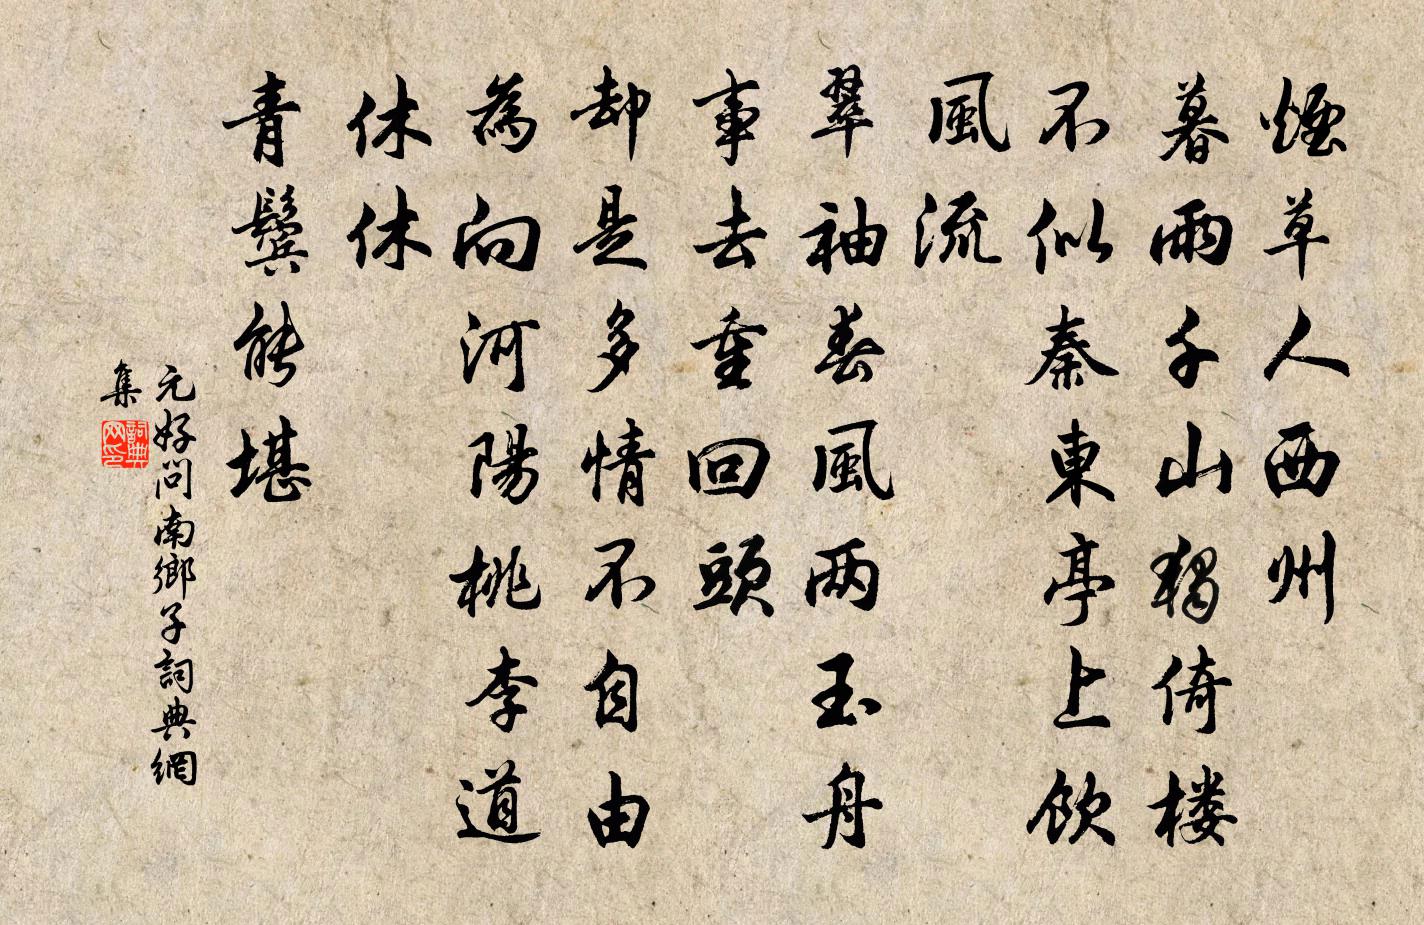 煙草人西州
暮雨千山獨倚樓
不似秦東亭上飲
風流
翠袖春風兩玉舟
事去重回頭
卻是多情不自由
為向河陽桃李道
休休
青鬢能堪
元好問南鄉子詞典網
集
詞典网印